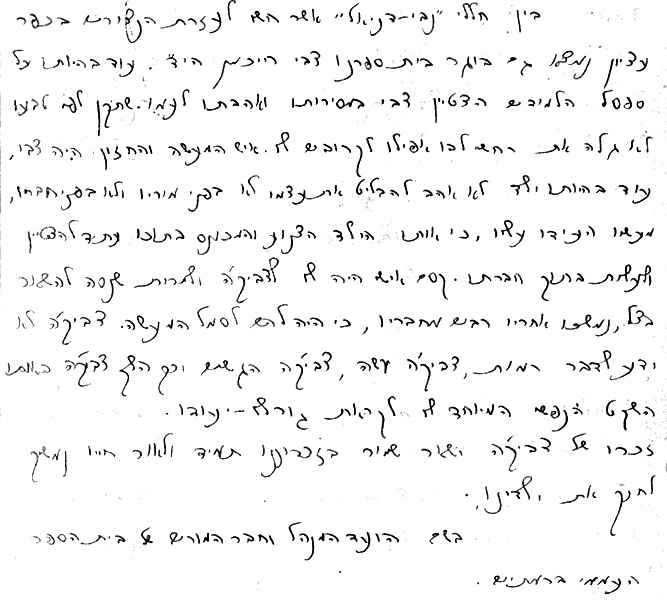 בין חללי "נבי-דניאל" אשר חש לעזרת הנצורים בכפר
עציון נמצא גם בוגר בית ספרנו צבי הי"ד. עוד בהיותו על
ספסל הלמודים הצטיין צבי במסירותו ואהבתו לעמו. שתקן לפי טבעו
לא גלה את רחשי לבו אפילו לקרובים לו. איש המעשה והחזון היה צבי,
עוד בהיותו ילד לא אהב להבליט את עצמו לא בפני מוריו ולא בפני חבריו,
מעשיו העידו עליו, כי אותו הילד הצנוע והמכונס בתוכו עתיד להצטיין
ולעלות בתוך חברתו. קסם אישי היה לו לצביקה ולמרות שנסה להשאר
בצל, נמשכו אחריו רבים מחבריו, כי היה להם לסמל המעשה. צביקה לא
ידע לדבר רמות, צביקה עשה, צביקה הגשים וכך הלך צביקה באותו
השקט הנפשי המיוחד לו לקראת גורלו - יעודו.
זכרו של צביקה ישאר שמור בזכרוננו תמיד ולאור חייו נמשיך
לחנך את ילדינו.
בשם הועד המנהל וחבר המורים של בית הספר
העממי ברמתיים.